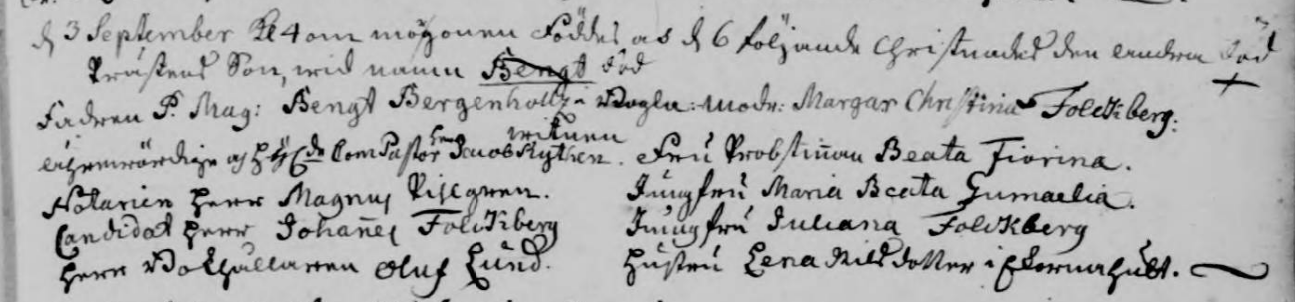 d 3 September Kl 4 om morgonen Föddes och d 6 följande Christnades den andra Död
Prästens Son, wid namn Bengt död
Fadren P. Mag: Bengt Bergenholtz i : Modr: Margar Christina Folckberg:
witnen
Com Pastor Herr Jacob Rythen. Fru Probstinnan Beata Fiorina.
Notarien Herr Magnus. Jungfru Maria Beata Gumaelia.
Candidat Herr Johannes Folckberg Jungfru Juliana Folckberg
Herr Bokhållaren Oluf Lund. Hustru Lena Nilsdotter i